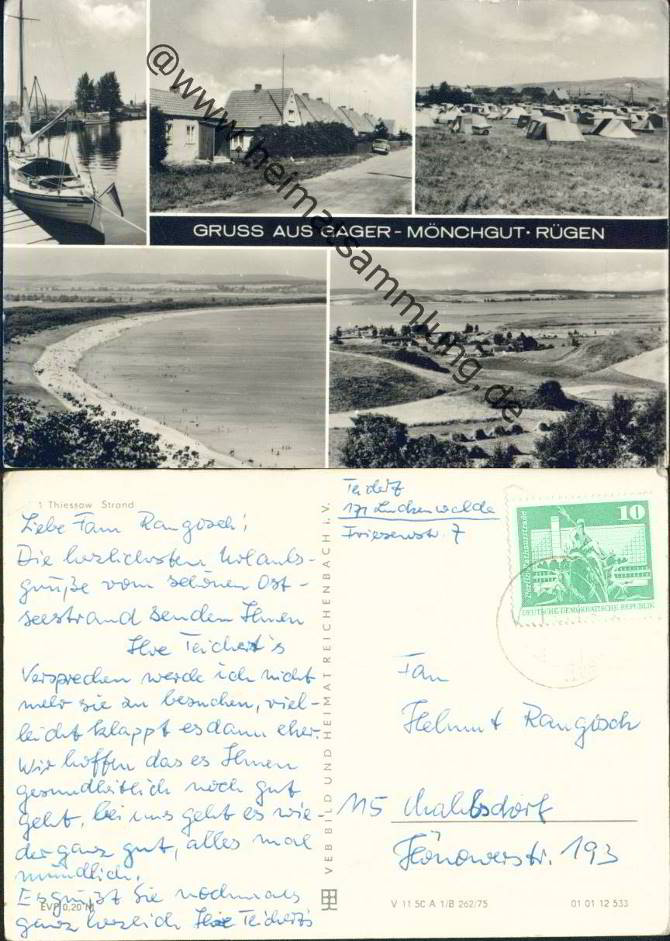 @www.heimatsammlung.de
GRUSS AUS GAGER - MÖNCHGUT · RÜGEN
1 Thiessow Strand
Liebe Fam Rangosch!
Die herzlichsten Urlaubs-
grüße vom schönen Ost-
seestrand senden Ihnen
Ihre Teichert's
Versprechen werde ich nicht
mehr sie zu besuchen, viel-
leicht klappt es dann eher.
Wir hoffen das es Ihnen
gesundheitlich noch gut
geht, bei uns geht es wie-
der ganz gut, alles mal
mündlich.
Es grüßt Sie nochmals
ganz herzlich Ihre Teichert's
EVP 0,20 M
VEB BILD UND HEIMAT REICHENBACH i. V.
171 Luckenwalde
Friesenstr. 7
10
Berlin, Rathausstraße
DEUTSCHE DEMOKRATISCHE REPUBLIK
Fam
Helmut Rangosch
115 Mahlsdorf
Hönowerstr. 193
V 11 50 A 1/B 262/75
01 01 12 533